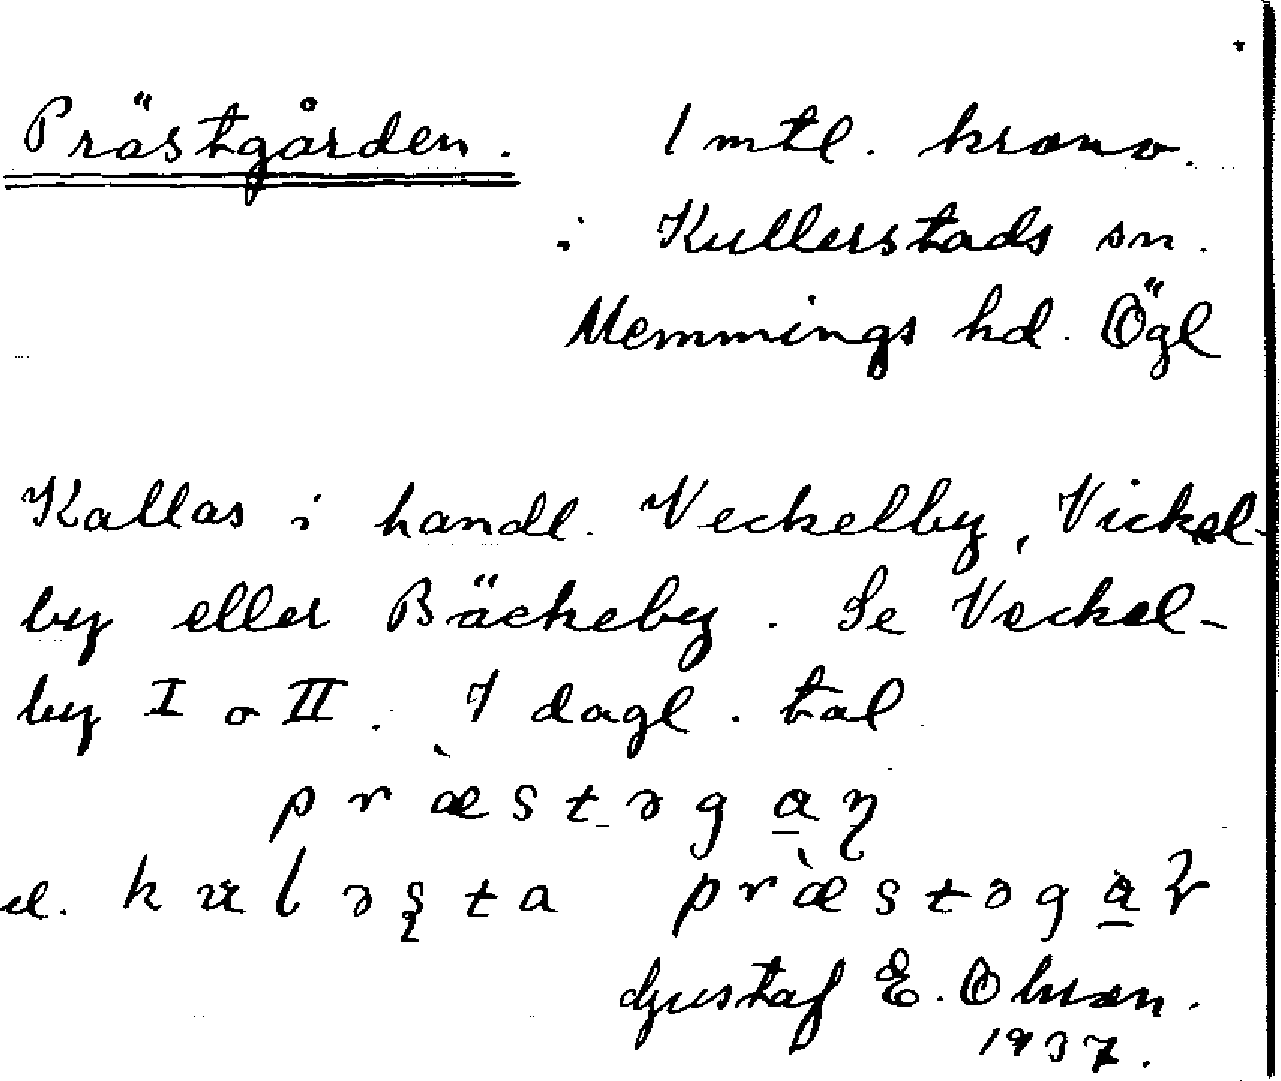 Prästgården. 1 mtl. krono.
i Kullerstads sn.
Memmings hd. Ögl
Kallas i handl. Veckelby, Vickel-
by eller Bäckeby. Se Veckel-
by I o II. I dagl. tal
præstəga
el. præstəga
Gustaf E. Olsson.
1937.